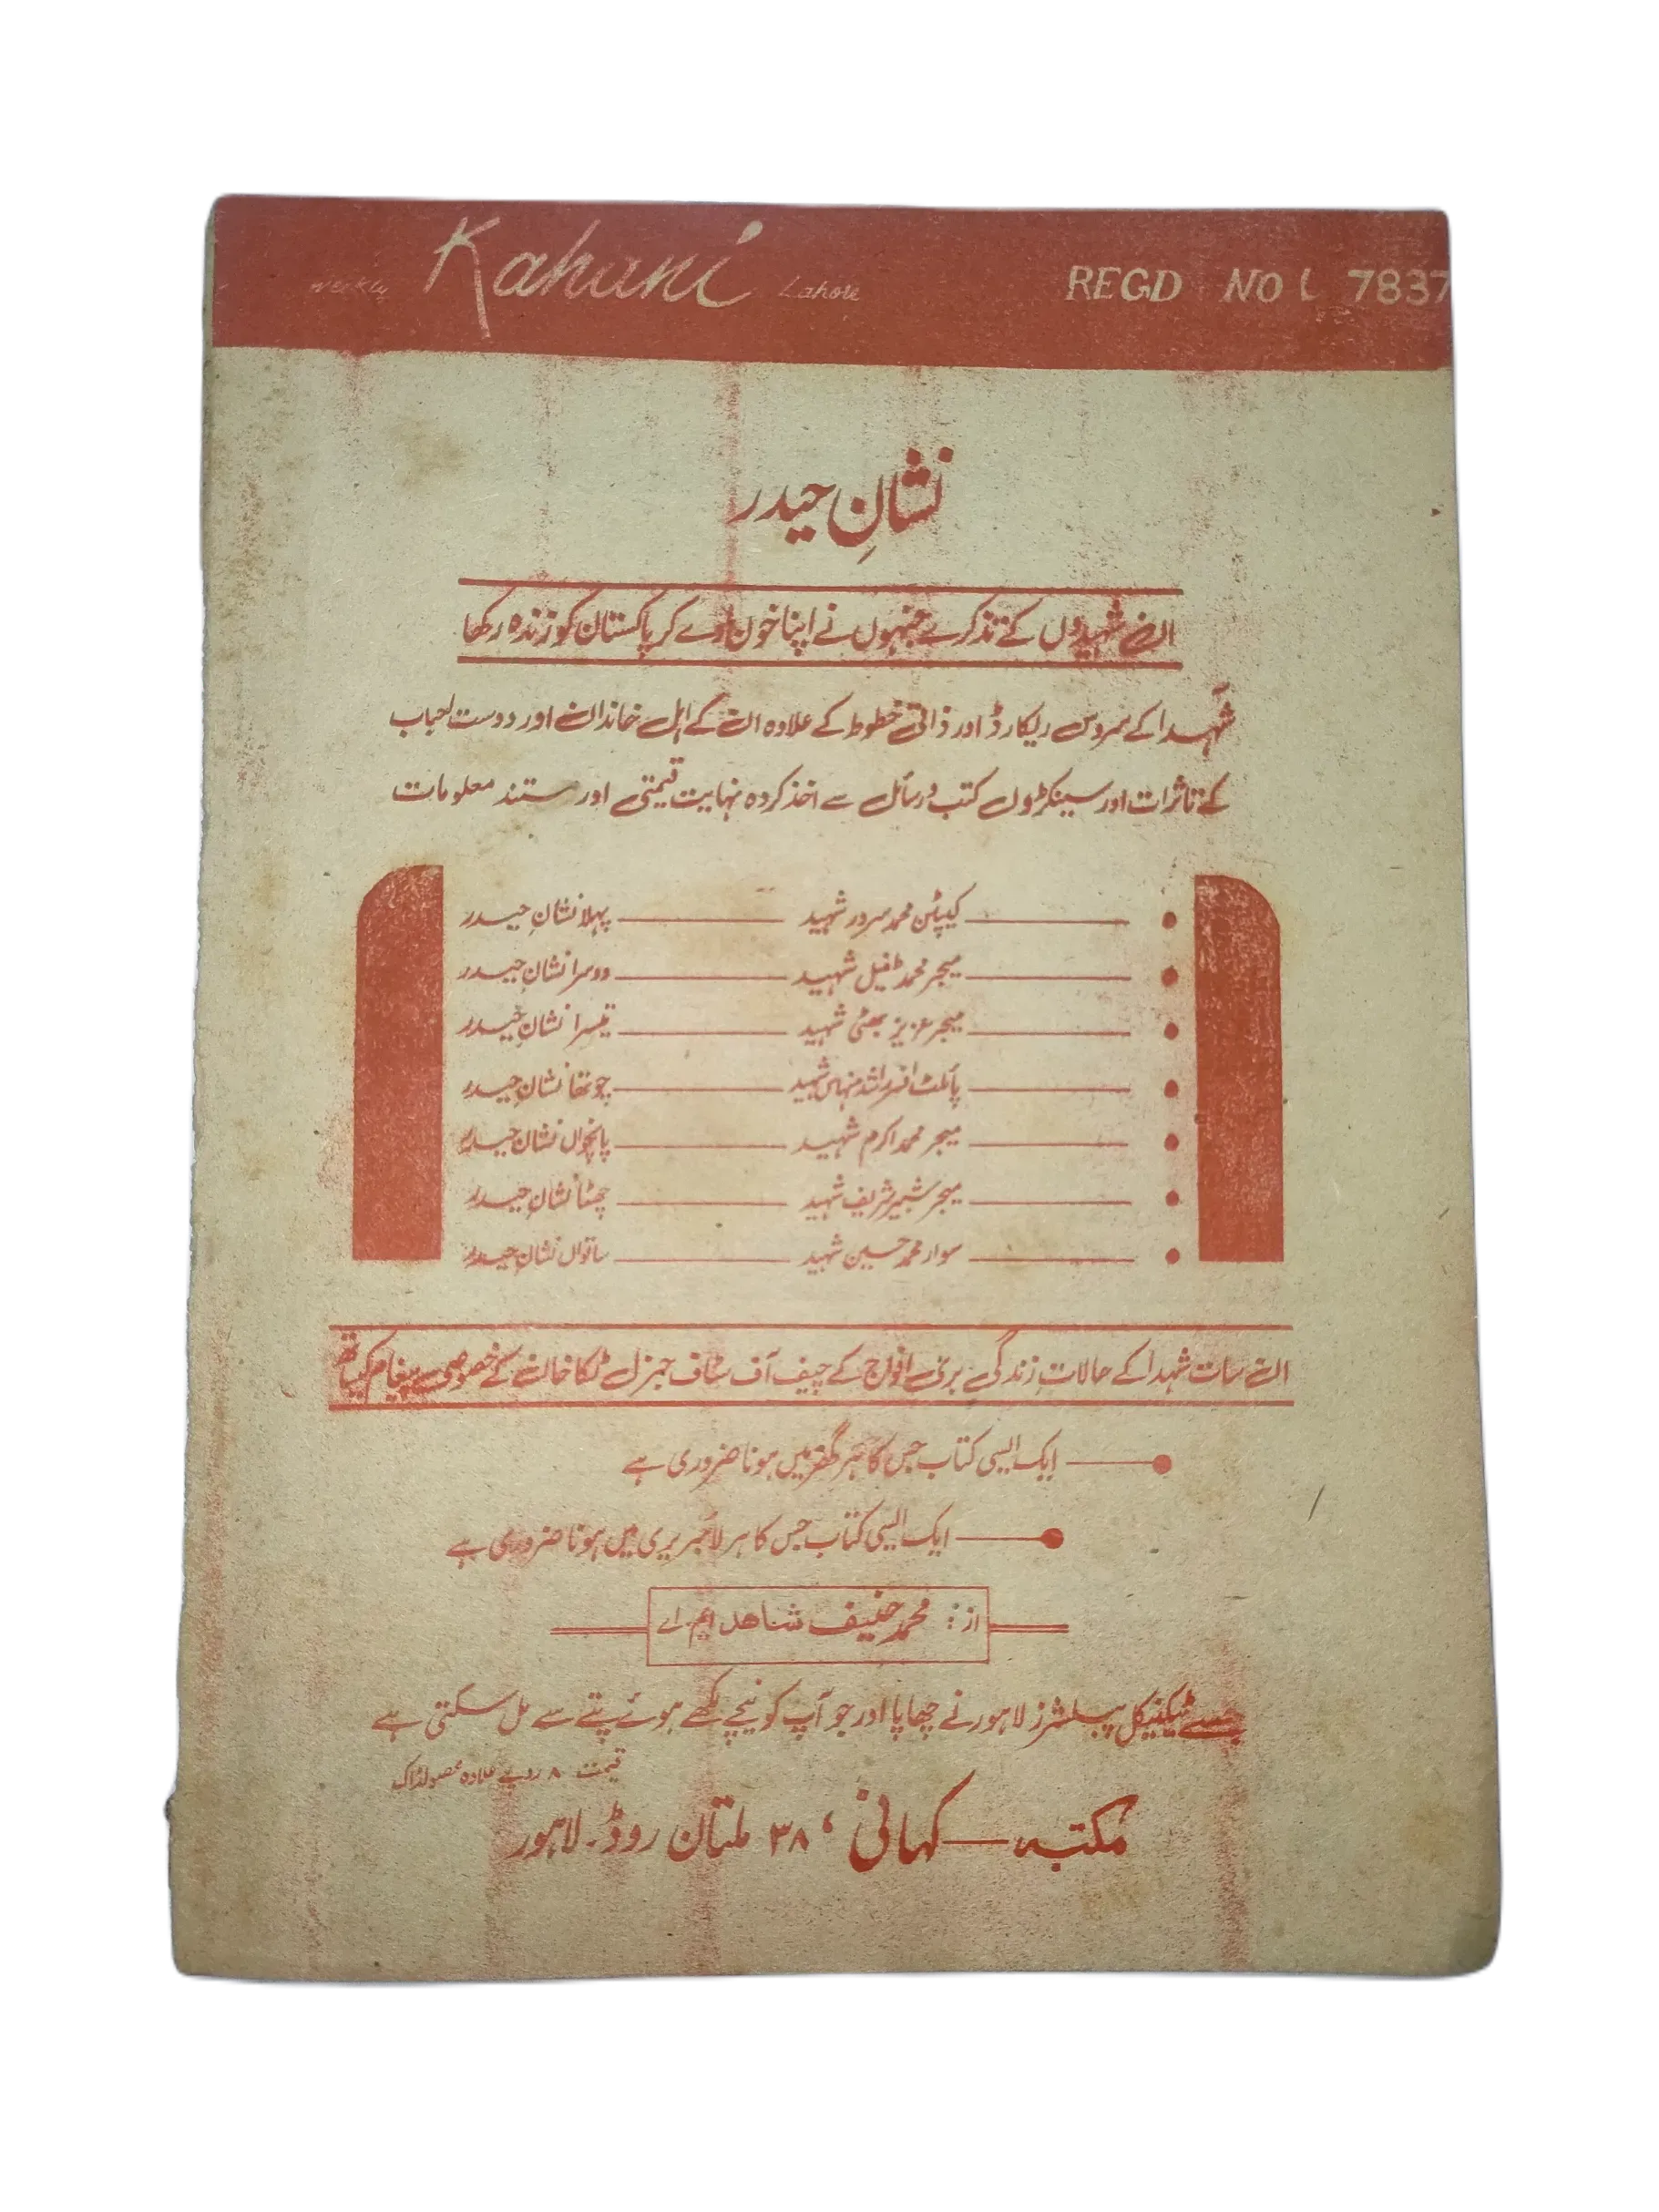 weekly Kahani Lahore REGD NO L 7837
نشانِ حیدر
ان شہیدوں کے تذکرے جنہوں نے اپنا خون دے کر پاکستان کو زندہ رکھا
شہدا کے سروس ریکارڈ اور ذاتی خطوط کے علاوہ ان کے اہل خاندان اور دوست احباب
کے تاثرات اور سینکڑوں کتب و رسائل سے اخذ کردہ نہایت قیمتی اور مستند معلومات
کیپٹن محمد سرور شہید پہلا نشانِ حیدر
میجر محمد طفیل شہید دوسرا نشانِ حیدر
میجر عزیز بھٹی شہید تیسرا نشانِ حیدر
پائلٹ افسر راشد منہاس شہید چوتھا نشانِ حیدر
میجر محمد اکرم شہید پانچواں نشانِ حیدر
میجر شبیر شریف شہید چھٹا نشانِ حیدر
سوار محمد حسین شہید ساتواں نشانِ حیدر
ان سات شہدا کے حالاتِ زندگی بری افواج کے چیف آف سٹاف جنرل ٹکا خان کے خصوصی پیغام کیساتھ
ایک ایسی کتاب جس کا ہر گھر میں ہونا ضروری ہے
ایک ایسی کتاب جس کا ہر لائبریری میں ہونا ضروری ہے
از: محمد حنیف شاھد ایم۔اے
جسے ٹیکنیکل پبلشرز لاہور نے چھاپا اور جو آپ کو نیچے لکھے ہوئے پتے سے مل سکتی ہے
قیمت ۸ روپے علاوہ محصولڈاک
مکتبہ — کہانی ، ۳۸ ملتان روڈ۔ لاہور